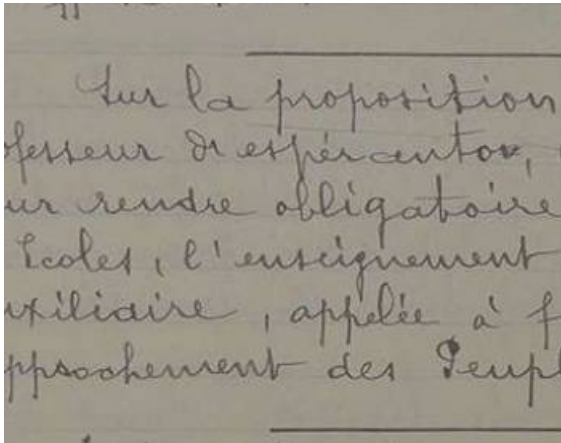 Sur la proposition
ofesseur d'espéranto,
ur rendre obligatoire
Ecoles, l'enseignement
uxiliaire, appelée à f
pprochement des Peupl